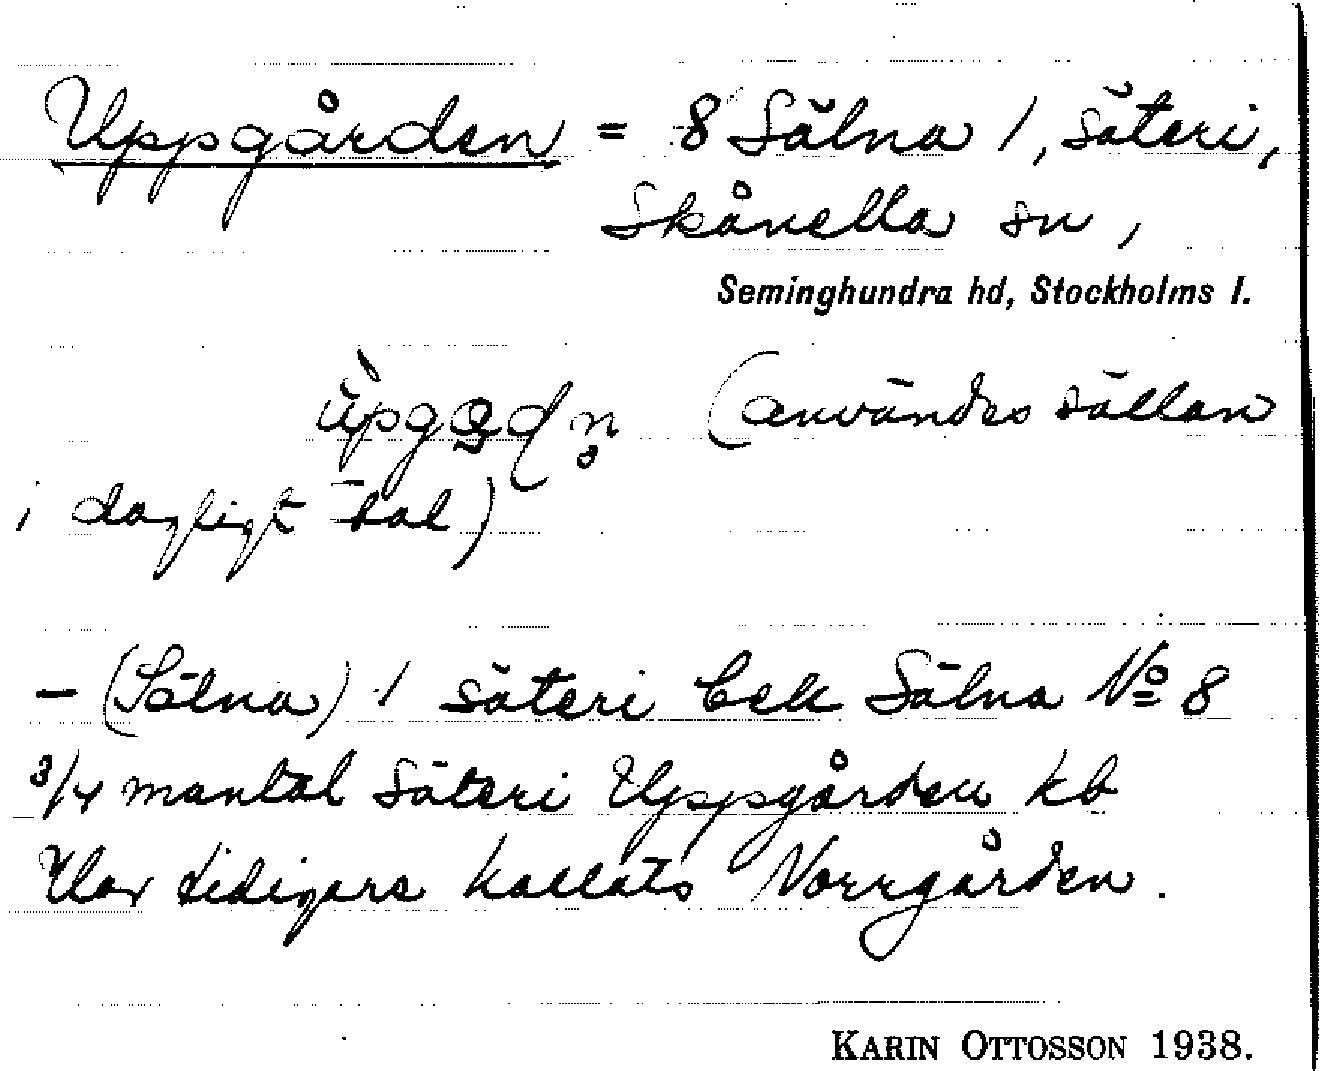 Uppgården = 8 Sälna 1, säteri,
Skånella sn,
Seminghundra hd, Stockholms l.
(användes sällan
i dagligt tal)
– (Sälna) 1 säteri bek Sälna No 8
3/4 mantal säteri Uppgården kb
Har tidigare kallats Norrgården.
KARIN OTTOSSON 1938.